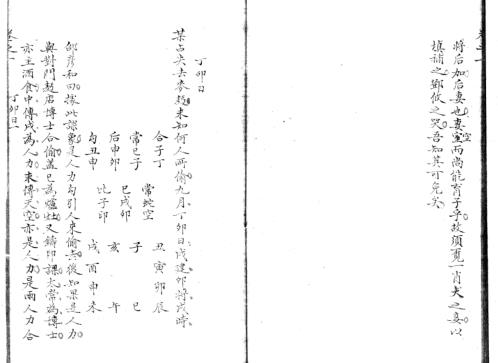 將后加后妻也妻空而尚能育子乎故須覓一肖犬之妾以
填補之鄧攸之哭吾知其可免矣
丁卯日
某占失去麥麴未知何人所偷九月丁卯日戌建卯將戌時
合子丁
常巳子
后申卯
勾丑申
常蛇空
巳戌卯
比子印
丑寅卯辰
子巳
亥午
戌酉申未
邵彥和曰據此課象是人力勾引人來偷去後知果是人力
與對門麴店博士合偷蓋巳為爐灶又鑄印課太常為博士
亦主酒食中傳戌為人力末傳天空亦是人力是兩人力合
卷之一
丁卯日一